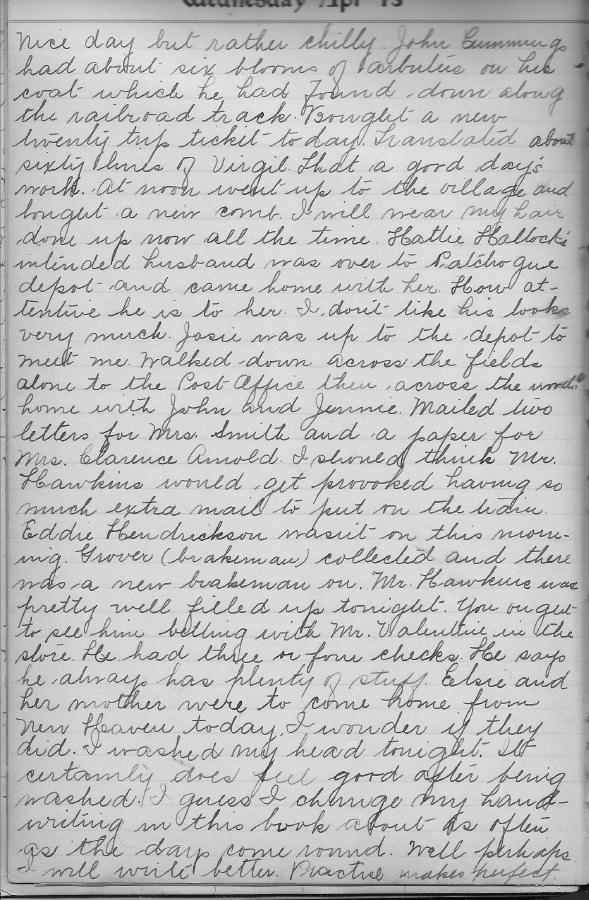 Wednesday Apr 13
Nice day but rather chilly. John Cummings
had about six blooms of arbutus on his
coat which he had found down along
the railroad track. Bought a new
twenty trip ticket to day. Translated about
sixty lines of Virgil. That a good day's
work. At noon went up to the village and
bought a new comb. I will wear my hair
done up now all the time. Hattie Hallock's
intended husband was over to Patchogue
depot and came home with her. How at-
tentive he is to her. I don't like his looks
very much. Josie was up to the depot to
meet me. Walked down across the fields
alone to the Post Office then across the woods
home with John and Jennie. Mailed two
letters for Mrs. Smith and a paper for
Mrs. Clarence Arnold. I should think Mr.
Hawkins would get provoked having so
much extra mail to put on the train.
Eddie Hendrickson wasn't on this morn-
ing. Grover (brakeman) collected and there
was a new brakeman on. Mr. Hawkins was
pretty well filled up tonight. You ought
to see him betting with Mr. Valentine in the
store. He had three or four checks. He says
he always has plenty of stuff. Elsie and
her mother were to come home from
New Heaven today, I wonder if they
did. I washed my head tonight. It
certainly does feel good after being
washed. I guess I change my hand-
writing in this book about as often
as the days come round. Well perhaps
I will write better. Practise makes perfect.